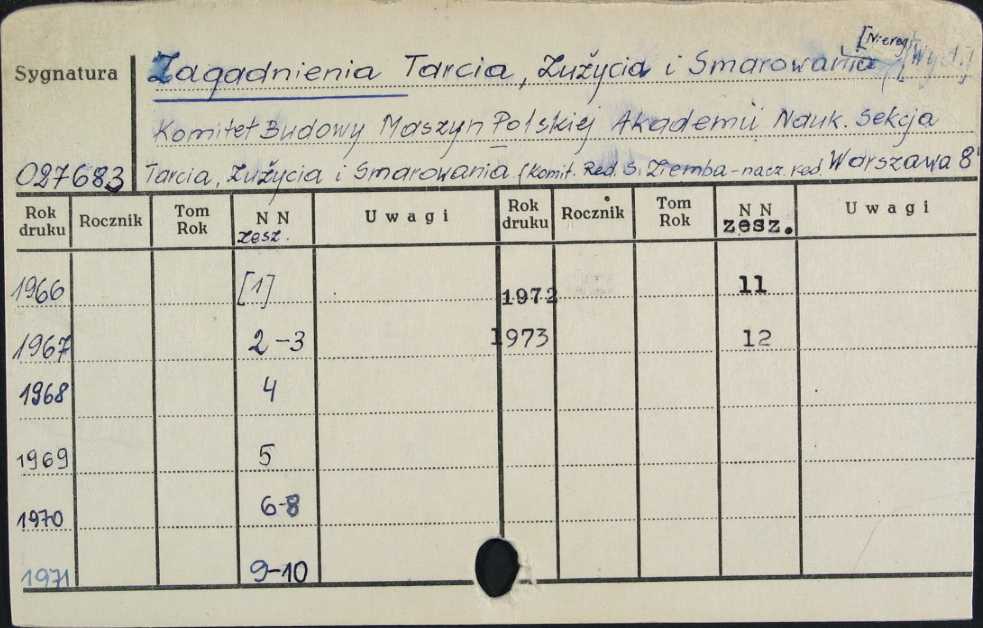 [Niereg.
Sygnatura Zagadnienia Tarcia, Zużycia i Smarowania [Wyd.]
Komitet Budowy Maszyn Polskiej Akademii Nauk. Sekcja
027683 Tarcia, Zużycia i Smarowania. (Komit. Red. S. Ziemba - nacz. red. Warszawa 8°
Rok druku Rocznik Tom Rok NN zesz. Uwagi Rok druku Rocznik Tom Rok NN zesz. Uwagi
1966 [1] 1972 11
1967 2-3 1973 12
1968 4
1969 5
1970 6-8
1971 9-10